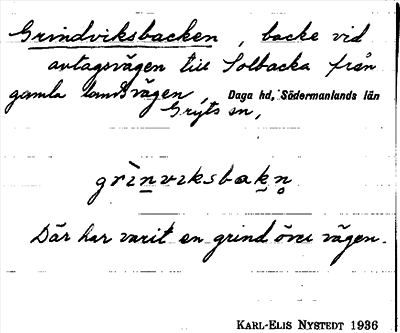 Grindviksbacken, backe vid
avtagsvägen till Solbacka från
gamla landsvägen, Daga hd, Södermanlands län
Gryts sn,
grìn̲viksbak̬n̥
Där har varit en grind över vägen.
KARL-ELIS NYSTEDT 1936